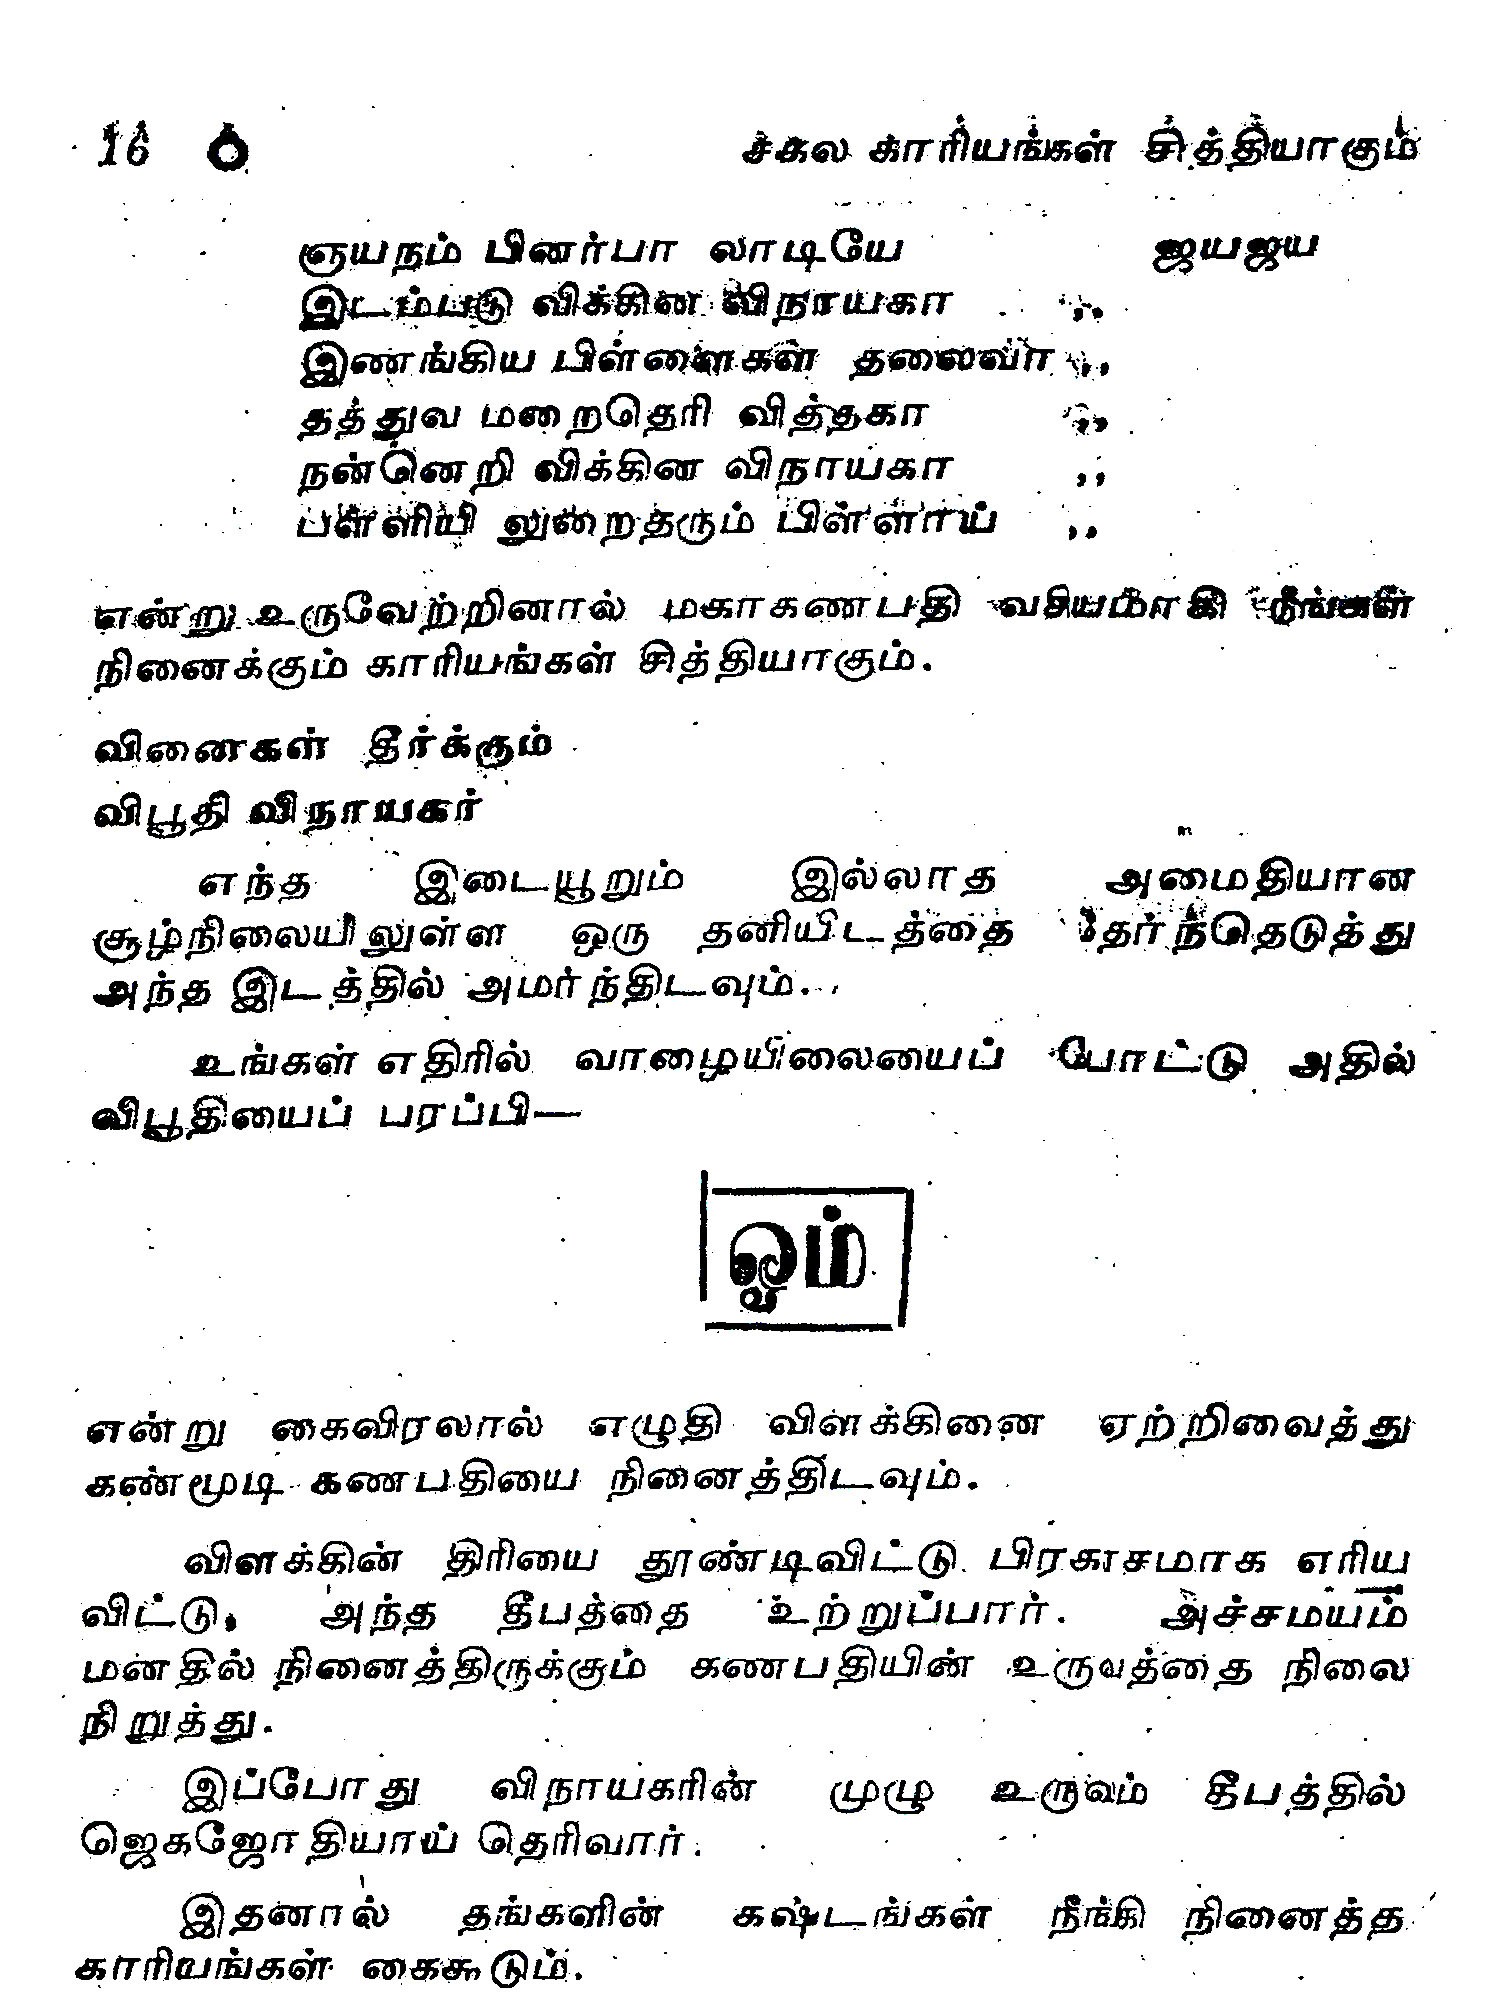 16 சகல காரியங்கள் சித்தியாகும்
ஞயநம் பினர்பா லாடியே ஜயஜய
இடம்படு விக்கின விநாயகா ,,
இணங்கிய பிள்ளைகள் தலைவா ,,
தத்துவ மறைதெரி வித்தகா ,,
நன்னெறி விக்கின விநாயகா ,,
பள்ளியி லுறைதரும் பிள்ளாய் ,,
என்று உருவேற்றினால் மகாகணபதி வசியமாகி நீங்கள்
நினைக்கும் காரியங்கள் சித்தியாகும்.
வினைகள் தீர்க்கும்
விபூதி விநாயகர்
எந்த இடையூறும் இல்லாத அமைதியான
சூழ்நிலையிலுள்ள ஒரு தனியிடத்தை தேர்ந்தெடுத்து
அந்த இடத்தில் அமர்ந்திடவும்.
உங்கள் எதிரில் வாழையிலையைப் போட்டு அதில்
விபூதியைப் பரப்பி—
ஓம்
என்று கைவிரலால் எழுதி விளக்கினை ஏற்றிவைத்து
கண்மூடி கணபதியை நினைத்திடவும்.
விளக்கின் திரியை தூண்டிவிட்டு பிரகாசமாக எரிய
விட்டு, அந்த தீபத்தை உற்றுப்பார். அச்சமயம்
மனதில் நினைத்திருக்கும் கணபதியின் உருவத்தை நிலை
நிறுத்து.
இப்போது விநாயகரின் முழு உருவம் தீபத்தில்
ஜெகஜோதியாய் தெரிவார்.
இதனால் தங்களின் கஷ்டங்கள் நீங்கி நினைத்த
காரியங்கள் கைகூடும்.